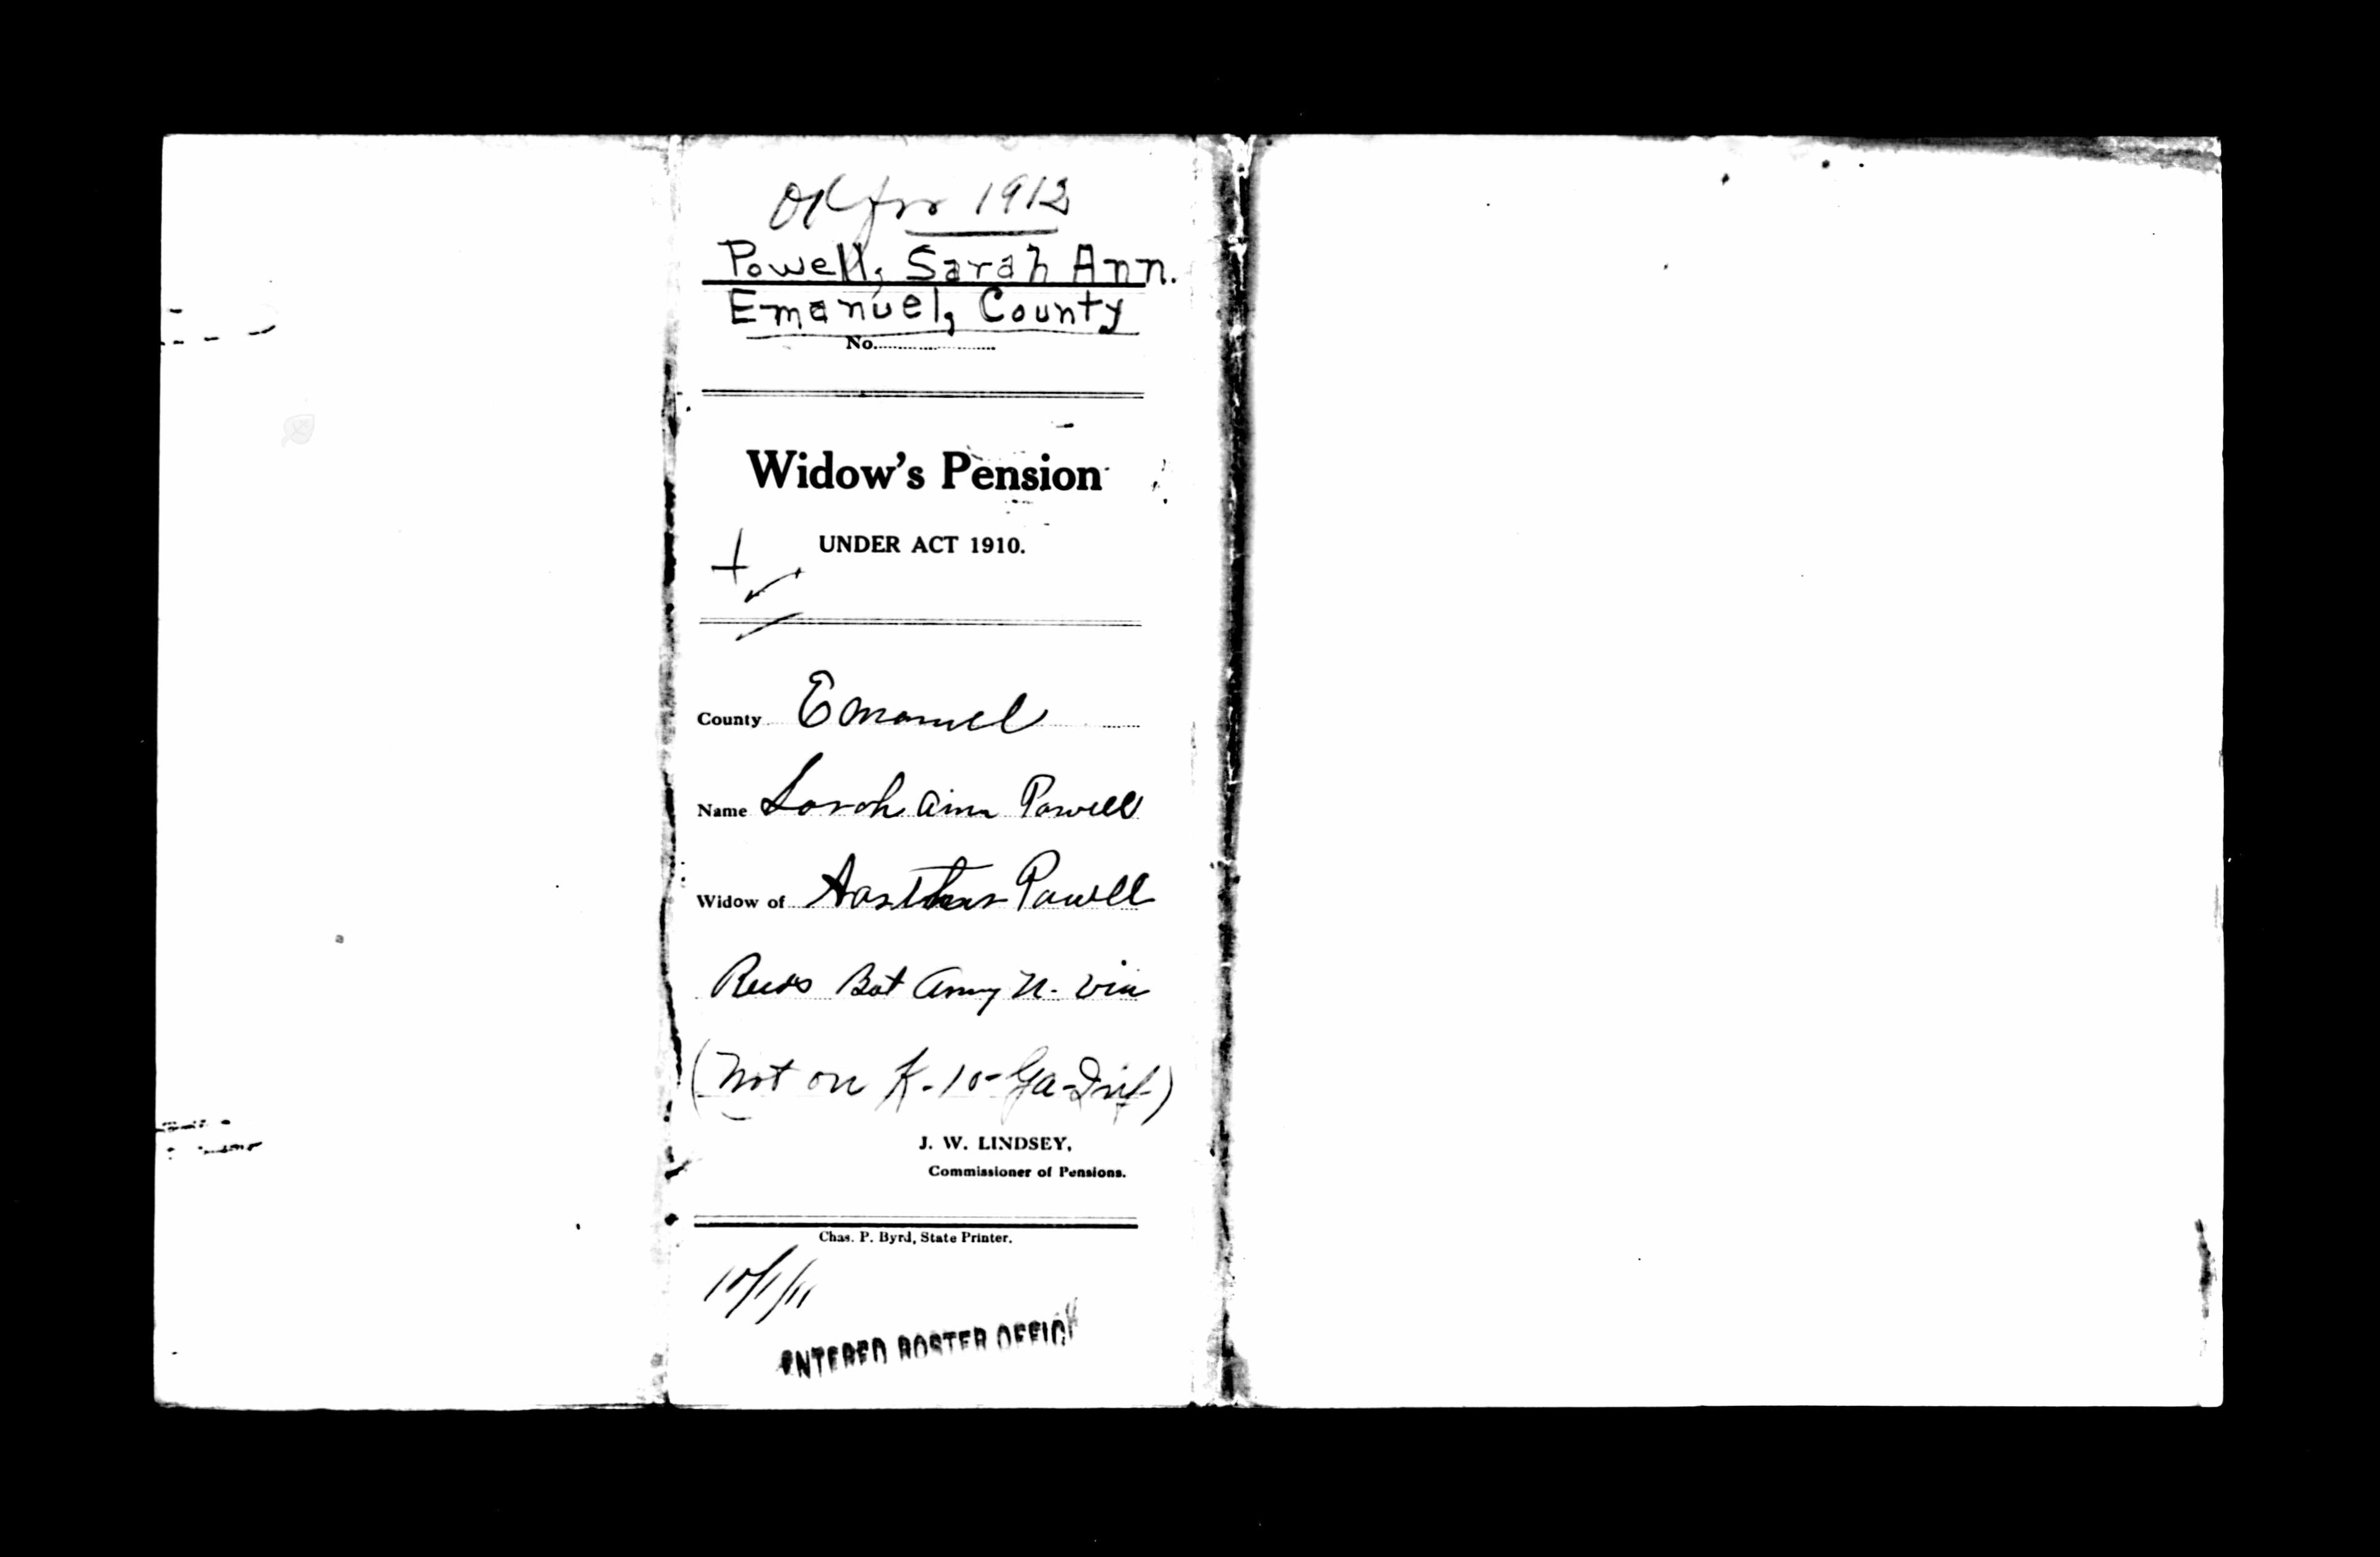 OK for 1912
Powell, Sarah Ann.
Emanuel, County
No.
Widow's Pension
UNDER ACT 1910.
County Emanuel
Name Sarah Ann Powell
Widow of Powell
Bat Army N. Vir
(Not on K-10-Ga-Inf)
J. W. LINDSEY,
Commissioner of Pensions.
Chas. P. Byrd, State Printer.
10/1/11
ENTERED ROSTER OFFICE